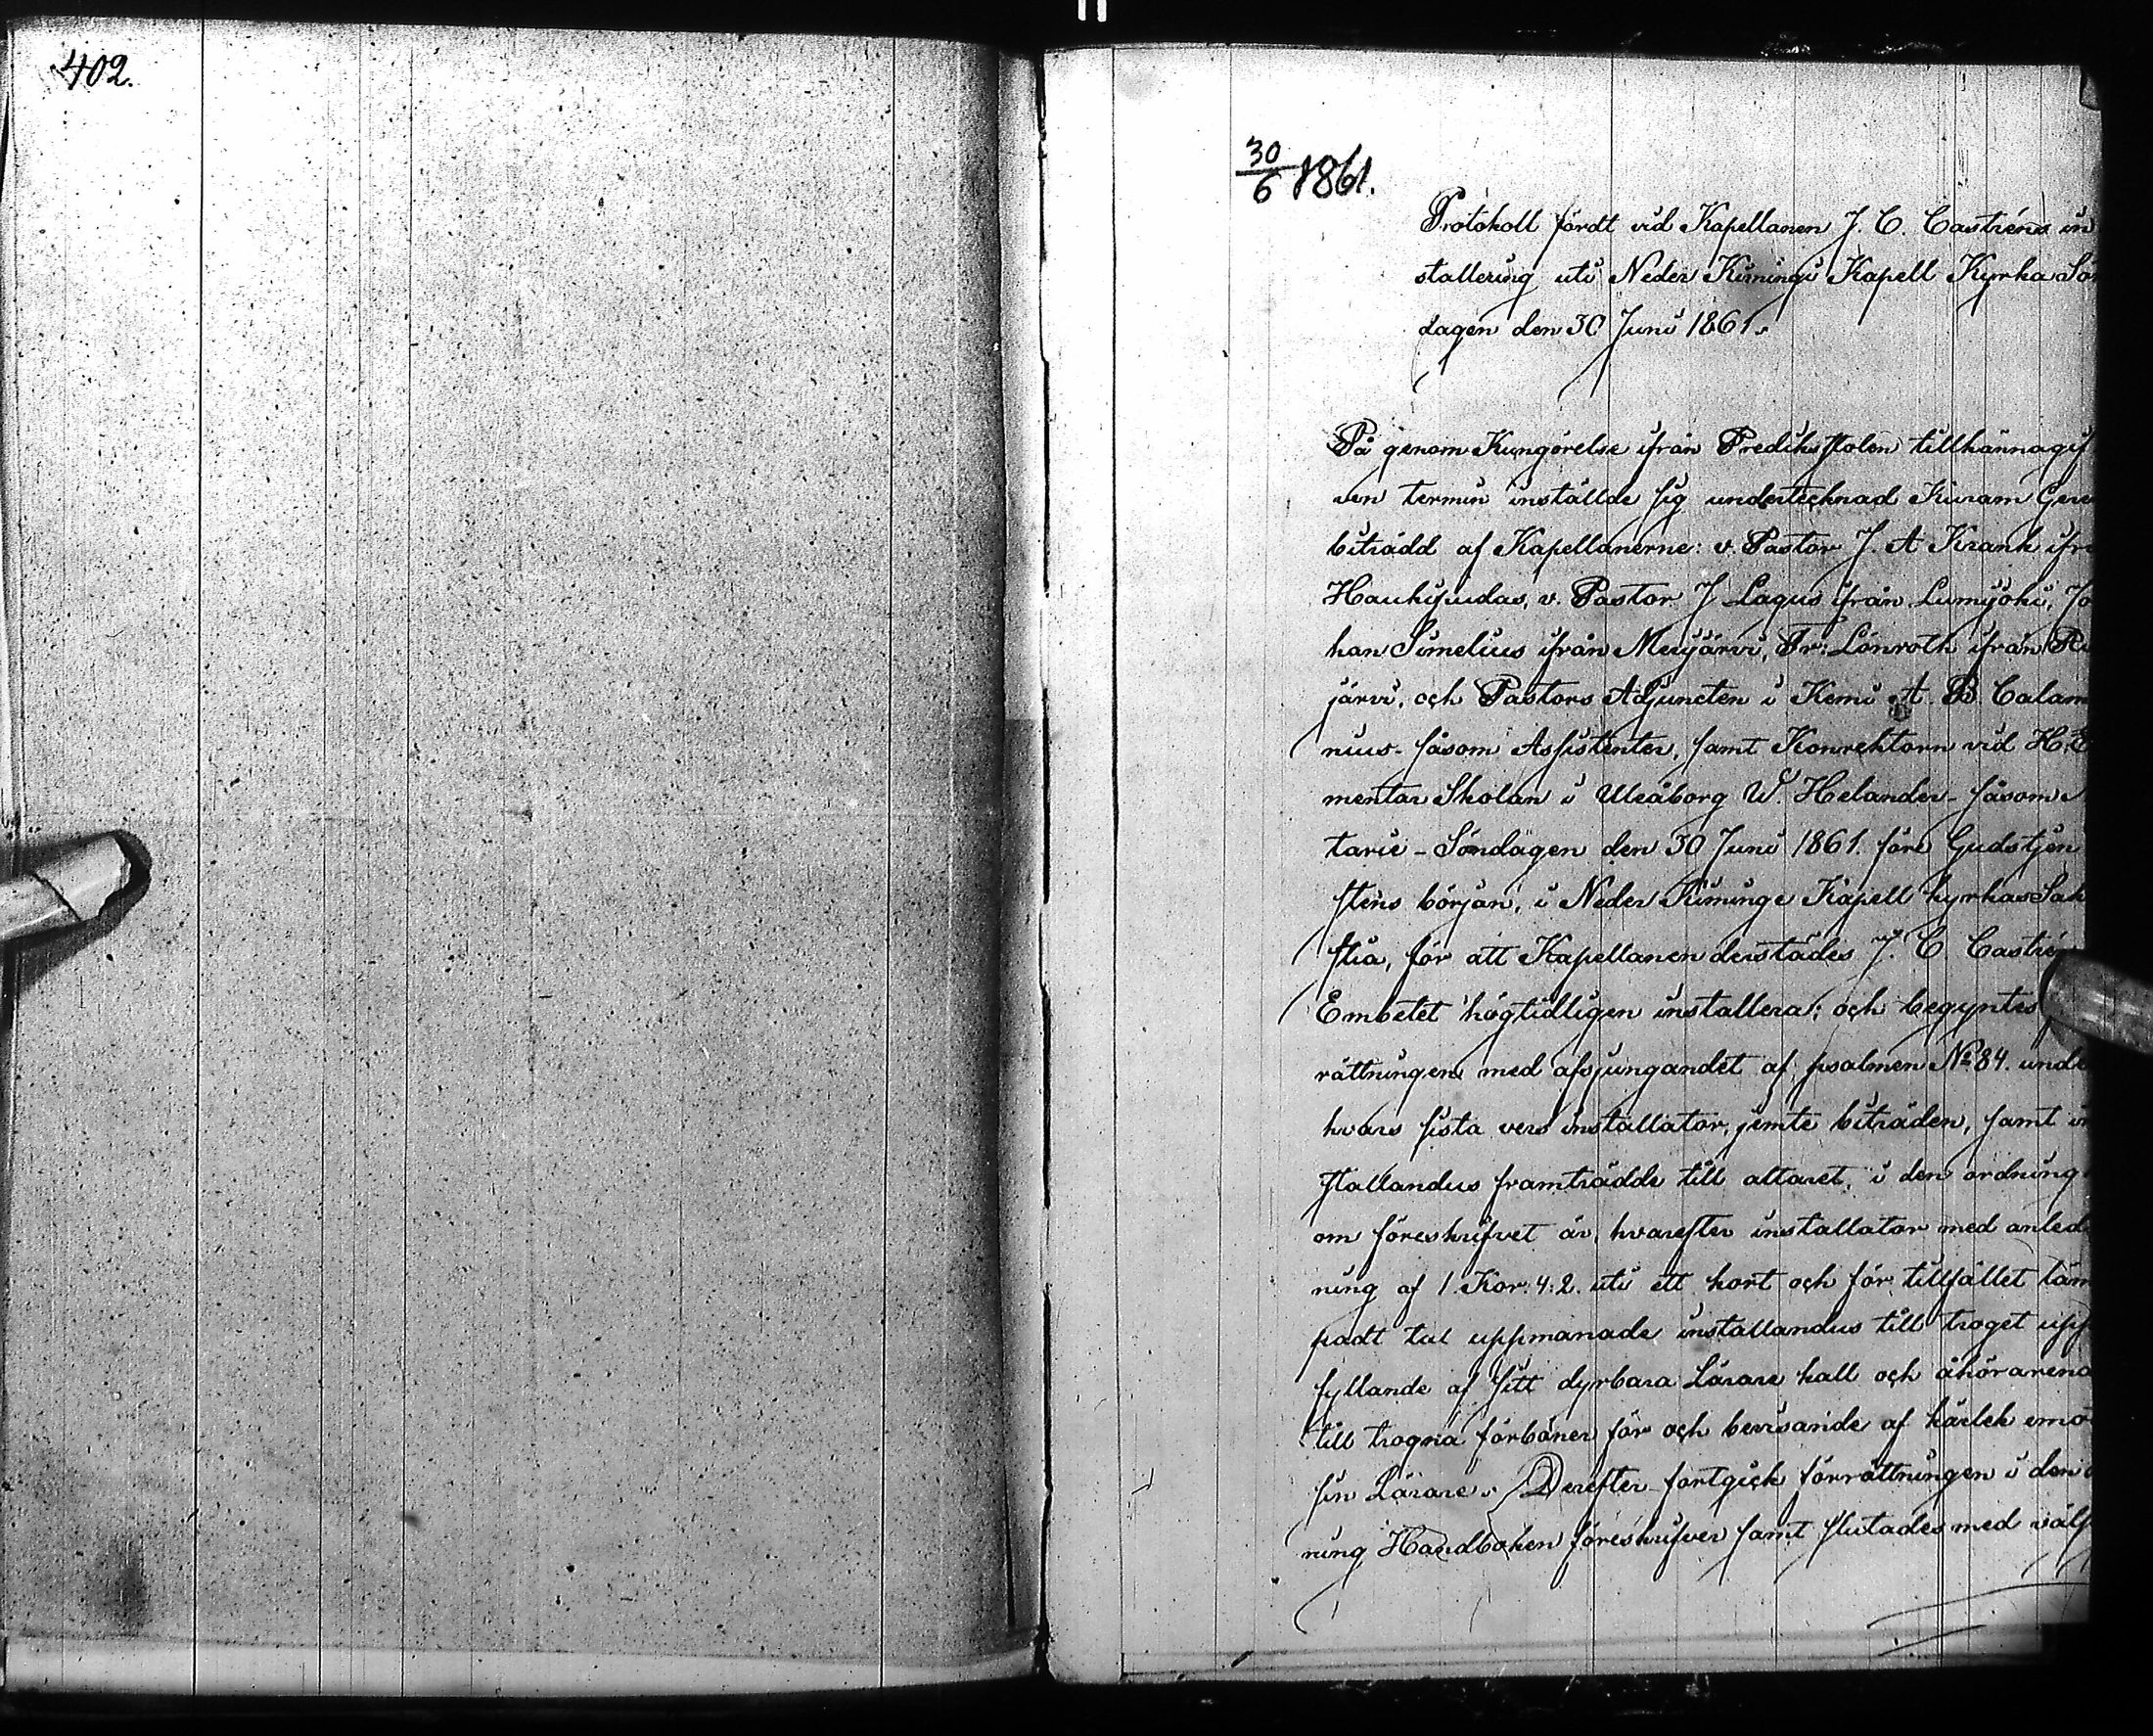 402.
30/6 1861.
Protokoll fördt vid Kapellanen J. C. Castréns in
stallering uti Neder Kimingi Kapell Kyrka Sön
dagen den 30 Juni 1861.
På genom Kungörelse ifrån Predikstolen tillkännagif
ven termin inställde sig undertecknad
biträdd af Kapellanerne: v. Pastor J. A Krank ifrå
Haukipudas, v. Pastor J Lagus ifrån Lumijoki, Jo
han Simelius ifrån Merijärvi, Fr: Lönroth ifrån
järvi, och Pastors Adjuncten i Kemi A B Calam
nius - såsom Assistenter, samt Konrektorn vid H. E
mentar Skolan i Uleåborg W. Helander - såsom
tarie - Söndagen den 30 Juni 1861. före Gudstjen
stens början, i Neder Kiminge Kapell kyrkas Sak
stia, för att Kapellanen derstädes J. C. Castrén
Embetet högtidligen installera; och begyntes
rättningen med afsjungandet af psalmen No 84. unde
hvars sista vers installator, jemte biträden, samt in
stallandus framträdde till altaret, i den ordning
om föreskrifvet är, hvarefter installator med anled
ning af 1. Kor. 4:2. uti ett kort och för tillfället läm
padt tal uppmanade installandus till troget upp
fyllande af sitt dyrbara Lärare kall och åhörarena
till trogna förböner för och bevisande af kärlek emo
sin Lärare. Derefter fortgick förrättningen i den
ning Handboken föreskrifver samt slutades med väls